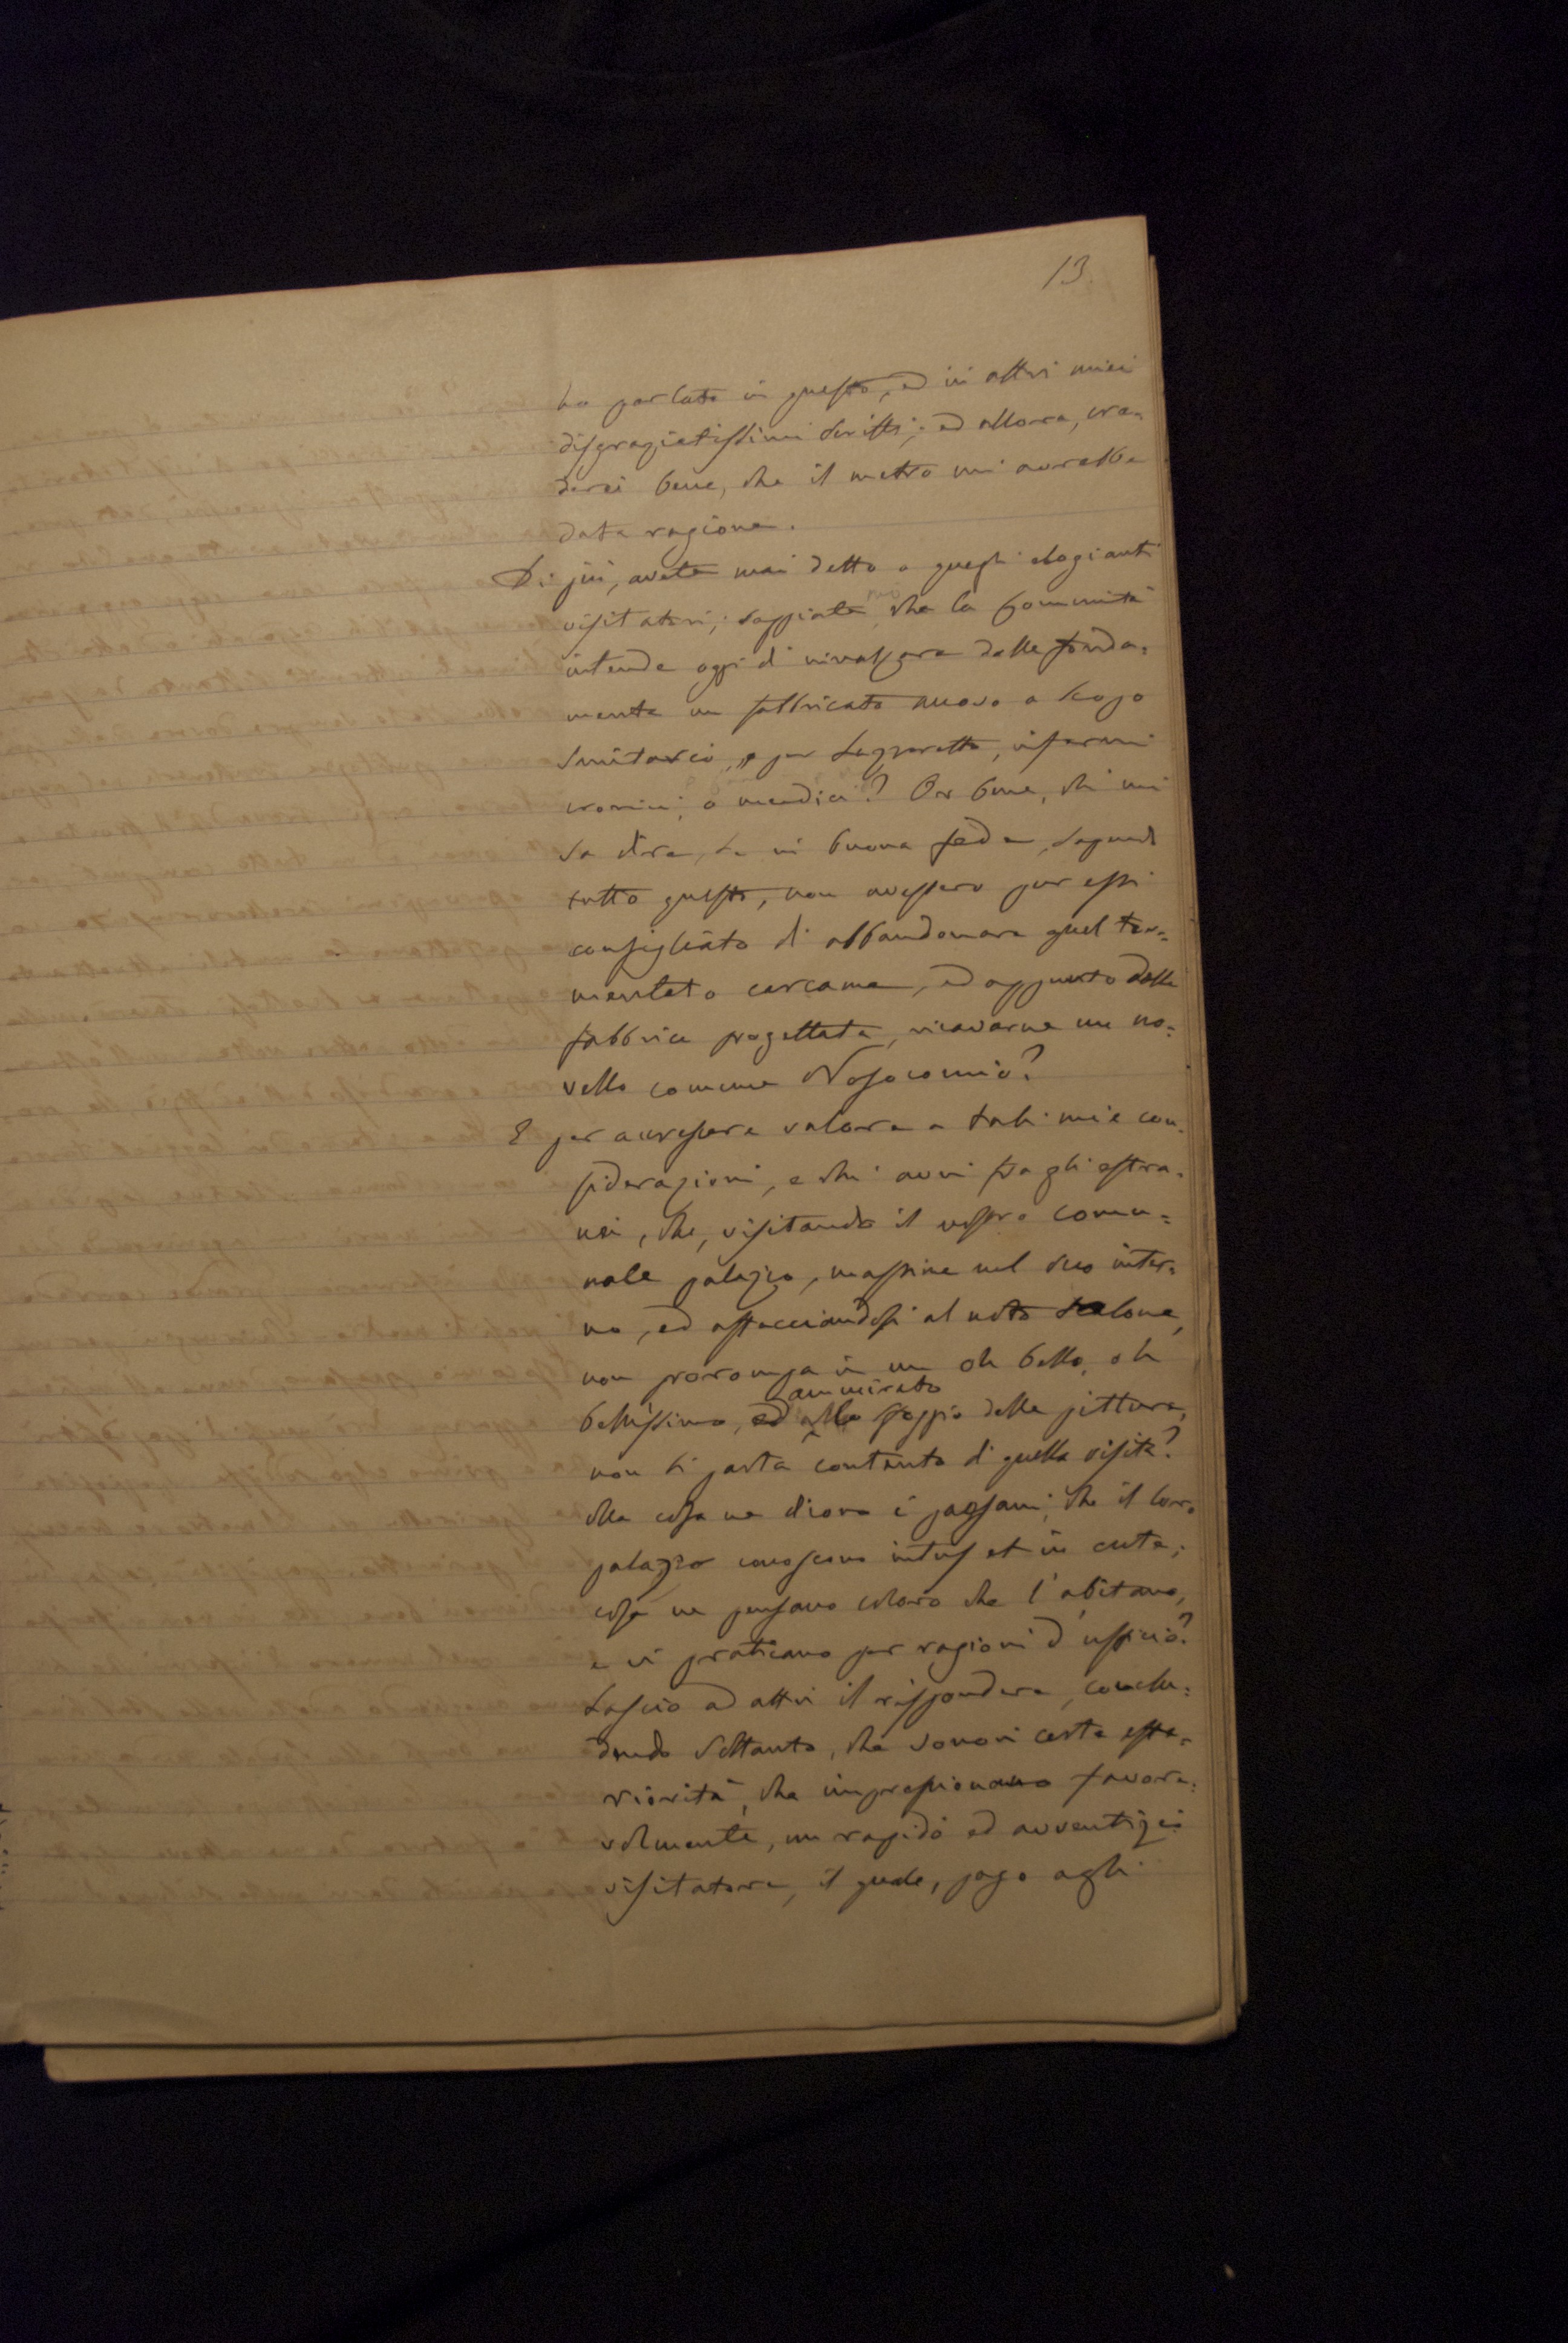 13
ho parlato in questo, ed in altri miei
disgraziatissimi scritti; ed allora, cre=
derei bene, che il metro mi avrebbe
data ragione.
Di più, avete mai detto a quegli elogianti
visitatori; sappiate, che la Communità
intende oggi di rinalzare dalle fonda=
menta un fabbricato nuovo a scopo
Sanitario, e per Lazzaretto, infermi
cronici, o mendici? Or bene, chi mi
sa dire, se in buona fede, sapendo
tutto questo, non avessero pur essi
consigliato di abbandonare quel tor=
mentato carcame, ed appunto dalla
fabbrica progettata, ricavarne un no=
vello comune Nosocomio?
E per accrescere valore a tali mie con=
siderazioni, e chi avvi fra gli estra=
nei, che, visitando il vostro comu=
nale palazzo, massime nel suo inter=
no, ed affacciandosi al noto salone,
non prorompa in un oh bello, oh
bellissimo, ed ammirato
allo sfoggio delle pitture,
non si parta contento di quella visita?
Ma cosa ne dicono i paesani, che il loro
palazzo conoscono intus et in cute;
cosa ne pensano coloro che l'abitano,
e vi praticano per ragioni d'ufficio?
Lascio ad altri il rispondere, conclu=
dendo soltanto, che sonovi certe este=
riorità, che impressionano favore=
volmente, un rapido ed avventizio
visitatore, il quale, pago agli